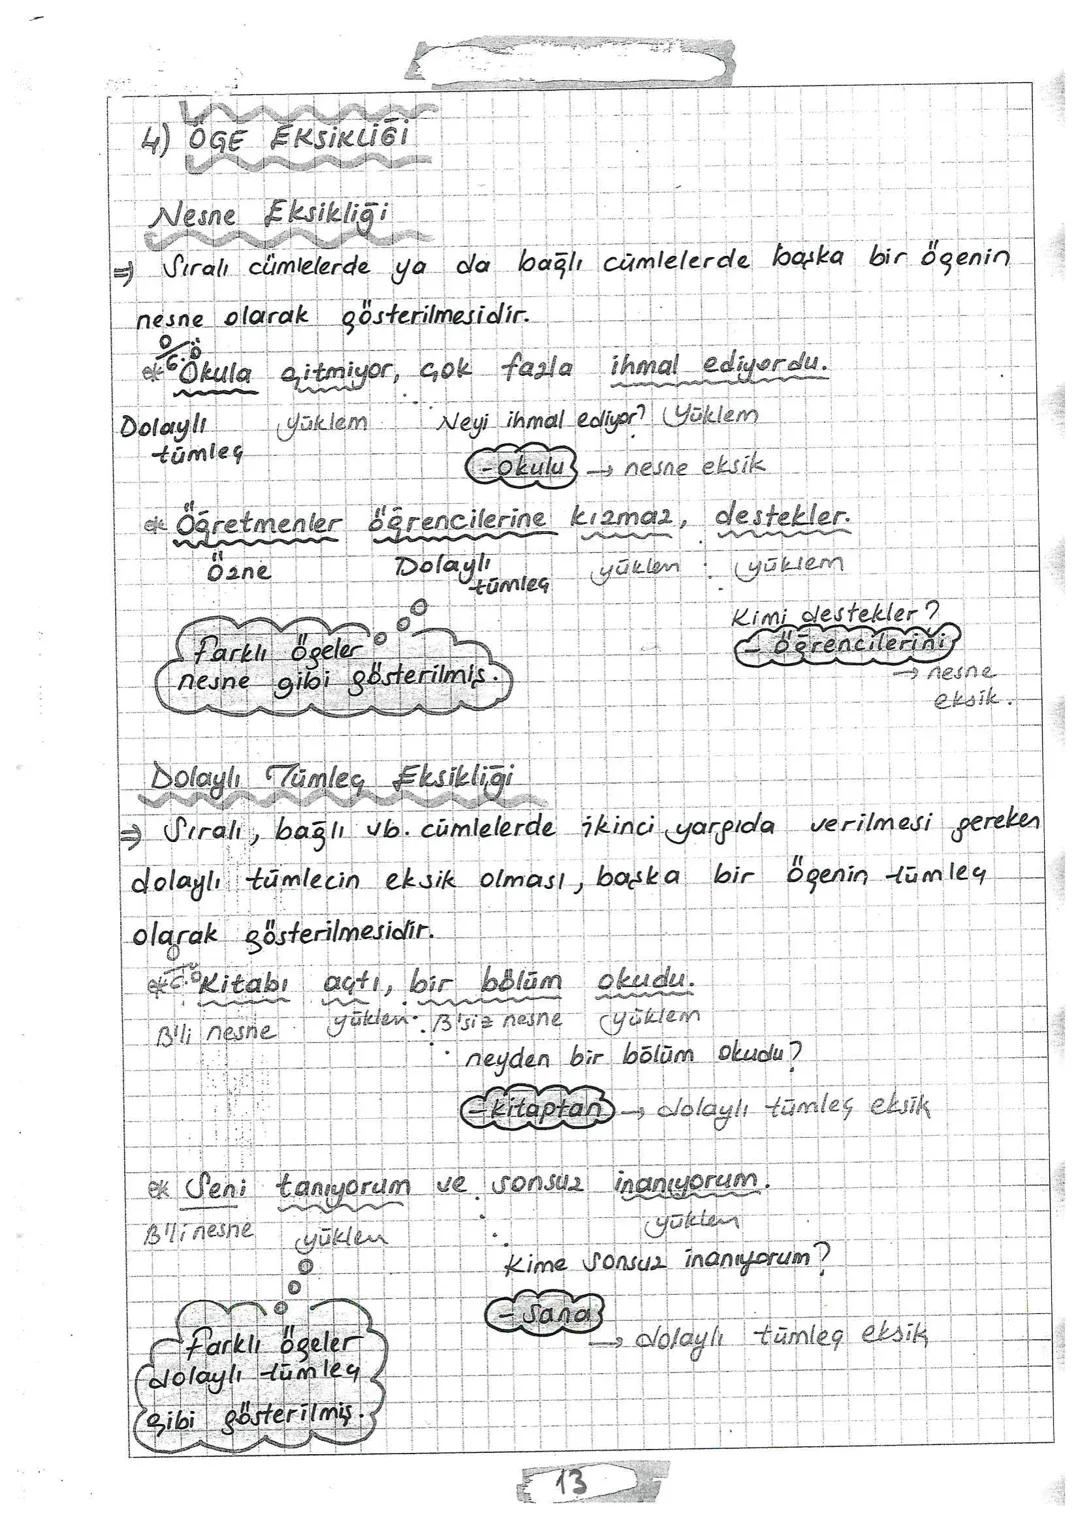 4) ÖGE EKSİKLİĞİ
Nesne Eksikliği
⇒ Sıralı cümlelerde ya da bağlı cümlelerde başka bir öğenin
nesne olarak gösterilmesidir.
G.Ö
ek Okula gitmiyor, çok fazla ihmal ediyordu.
Dolaylı tümleç yüklem Neyi ihmal ediyor? Yüklem
- okulu → nesne eksik
ek Öğretmenler öğrencilerine kızmaz, destekler.
Özne Dolaylı tümleç yüklem yüklem
Kimi destekler?
- öğrencilerini
→ nesne eksik.
Farklı öğeler
nesne gibi gösterilmiş.
Dolaylı Tümleç Eksikliği
⇒ Sıralı, bağlı vb. cümlelerde ikinci yargıda verilmesi gereken
dolaylı tümlecin eksik olması, başka bir öğenin tümleç
olarak gösterilmesidir.
ek Kitabı açtı, bir bölüm okudu.
B'li nesne yüklem B'siz nesne yüklem
neyden bir bölüm okudu?
- kitaptan → dolaylı tümleç eksik
ek Seni tanıyorum ve sonsuz inanıyorum.
B'li nesne yüklem yüklem
Kime sonsuz inanıyorum?
- Sana
→ dolaylı tümleç eksik
Farklı öğeler
dolaylı tümleç
gibi gösterilmiş.
13